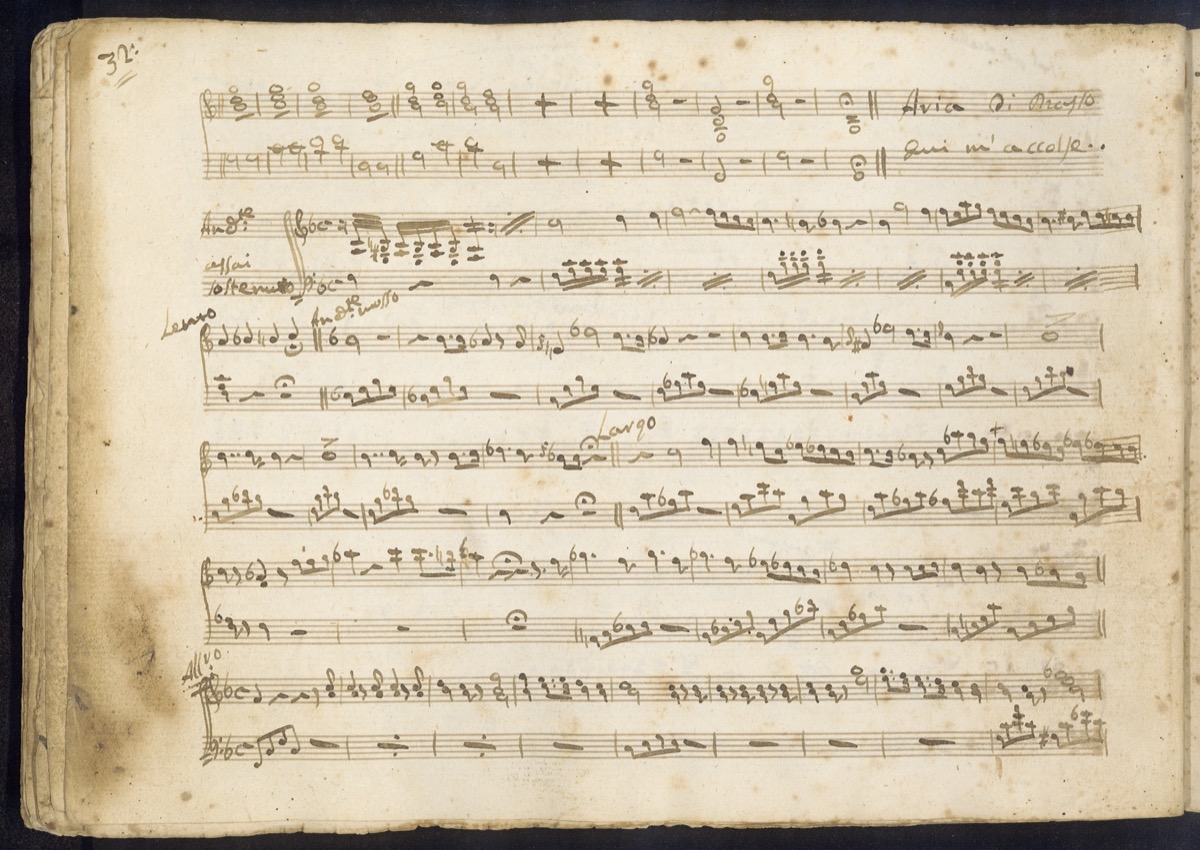 32.
Aria Di Basso
Qui m'accolse..
And.te
assai
sostenuto
Lento
And.te mosso
Largo
All.vo